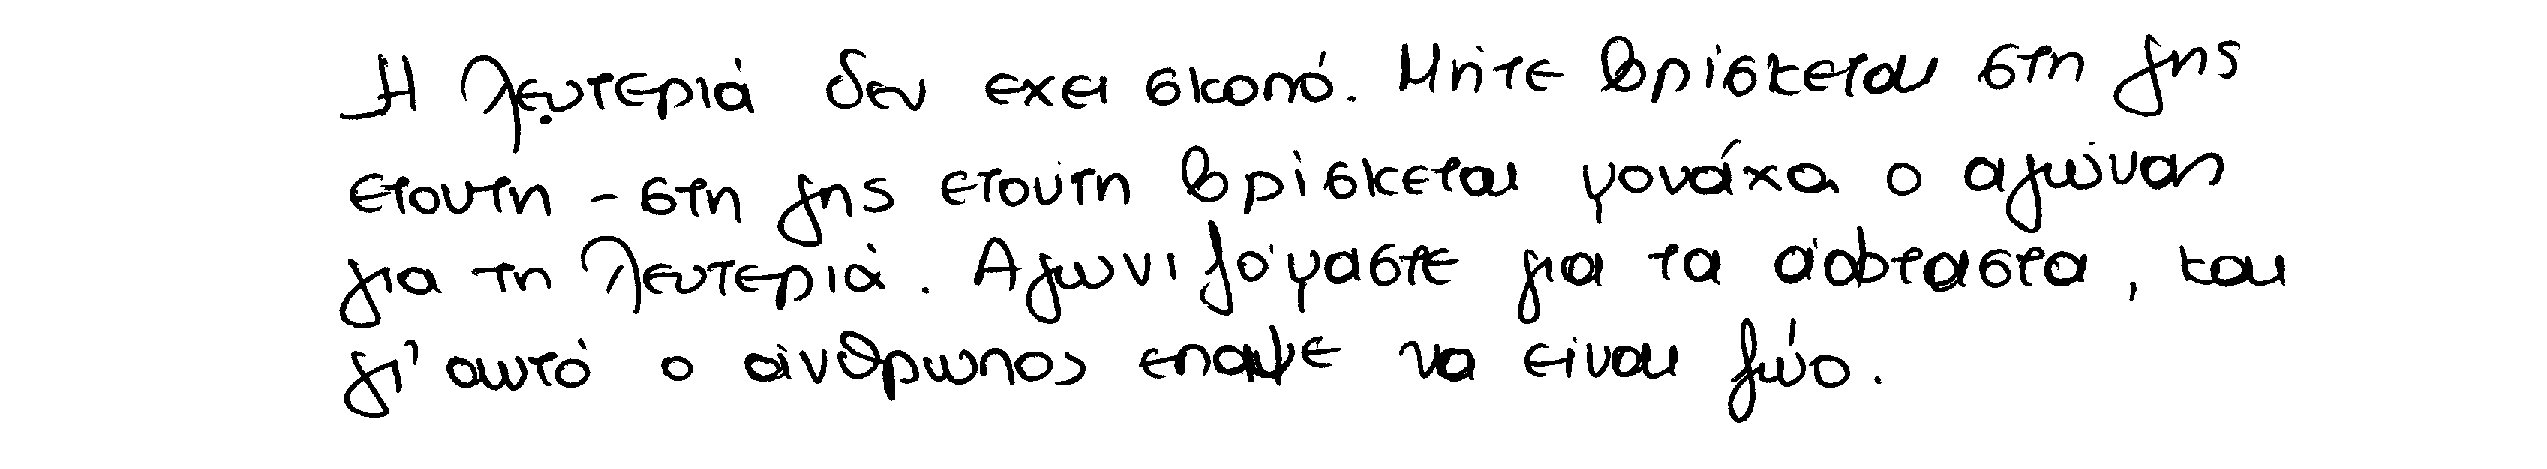 Η λευτεριά δεν εχει σκοπό. Μήτε βρίσκεται στη γης
ετουτη - στη γης ετούτη βρίσκεται μονάχα ο αγώνας
για τη λευτεριά. Αγωνιζόμαστε για τα άφταστα, και
γι' αυτό ο άνθρωπος επαψε να είναι ζώο.